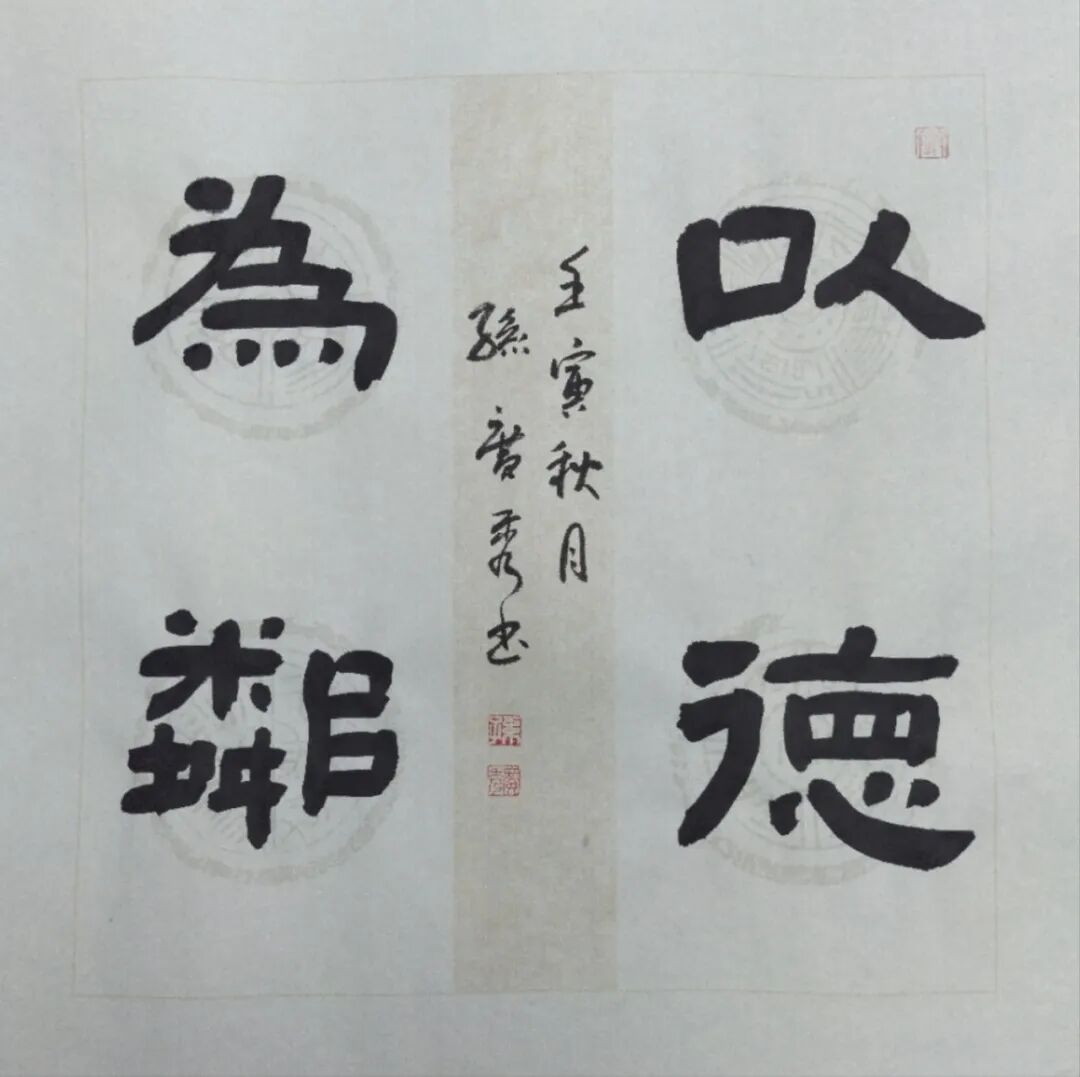 以德
為鄰
壬寅秋月
孫廣秀书